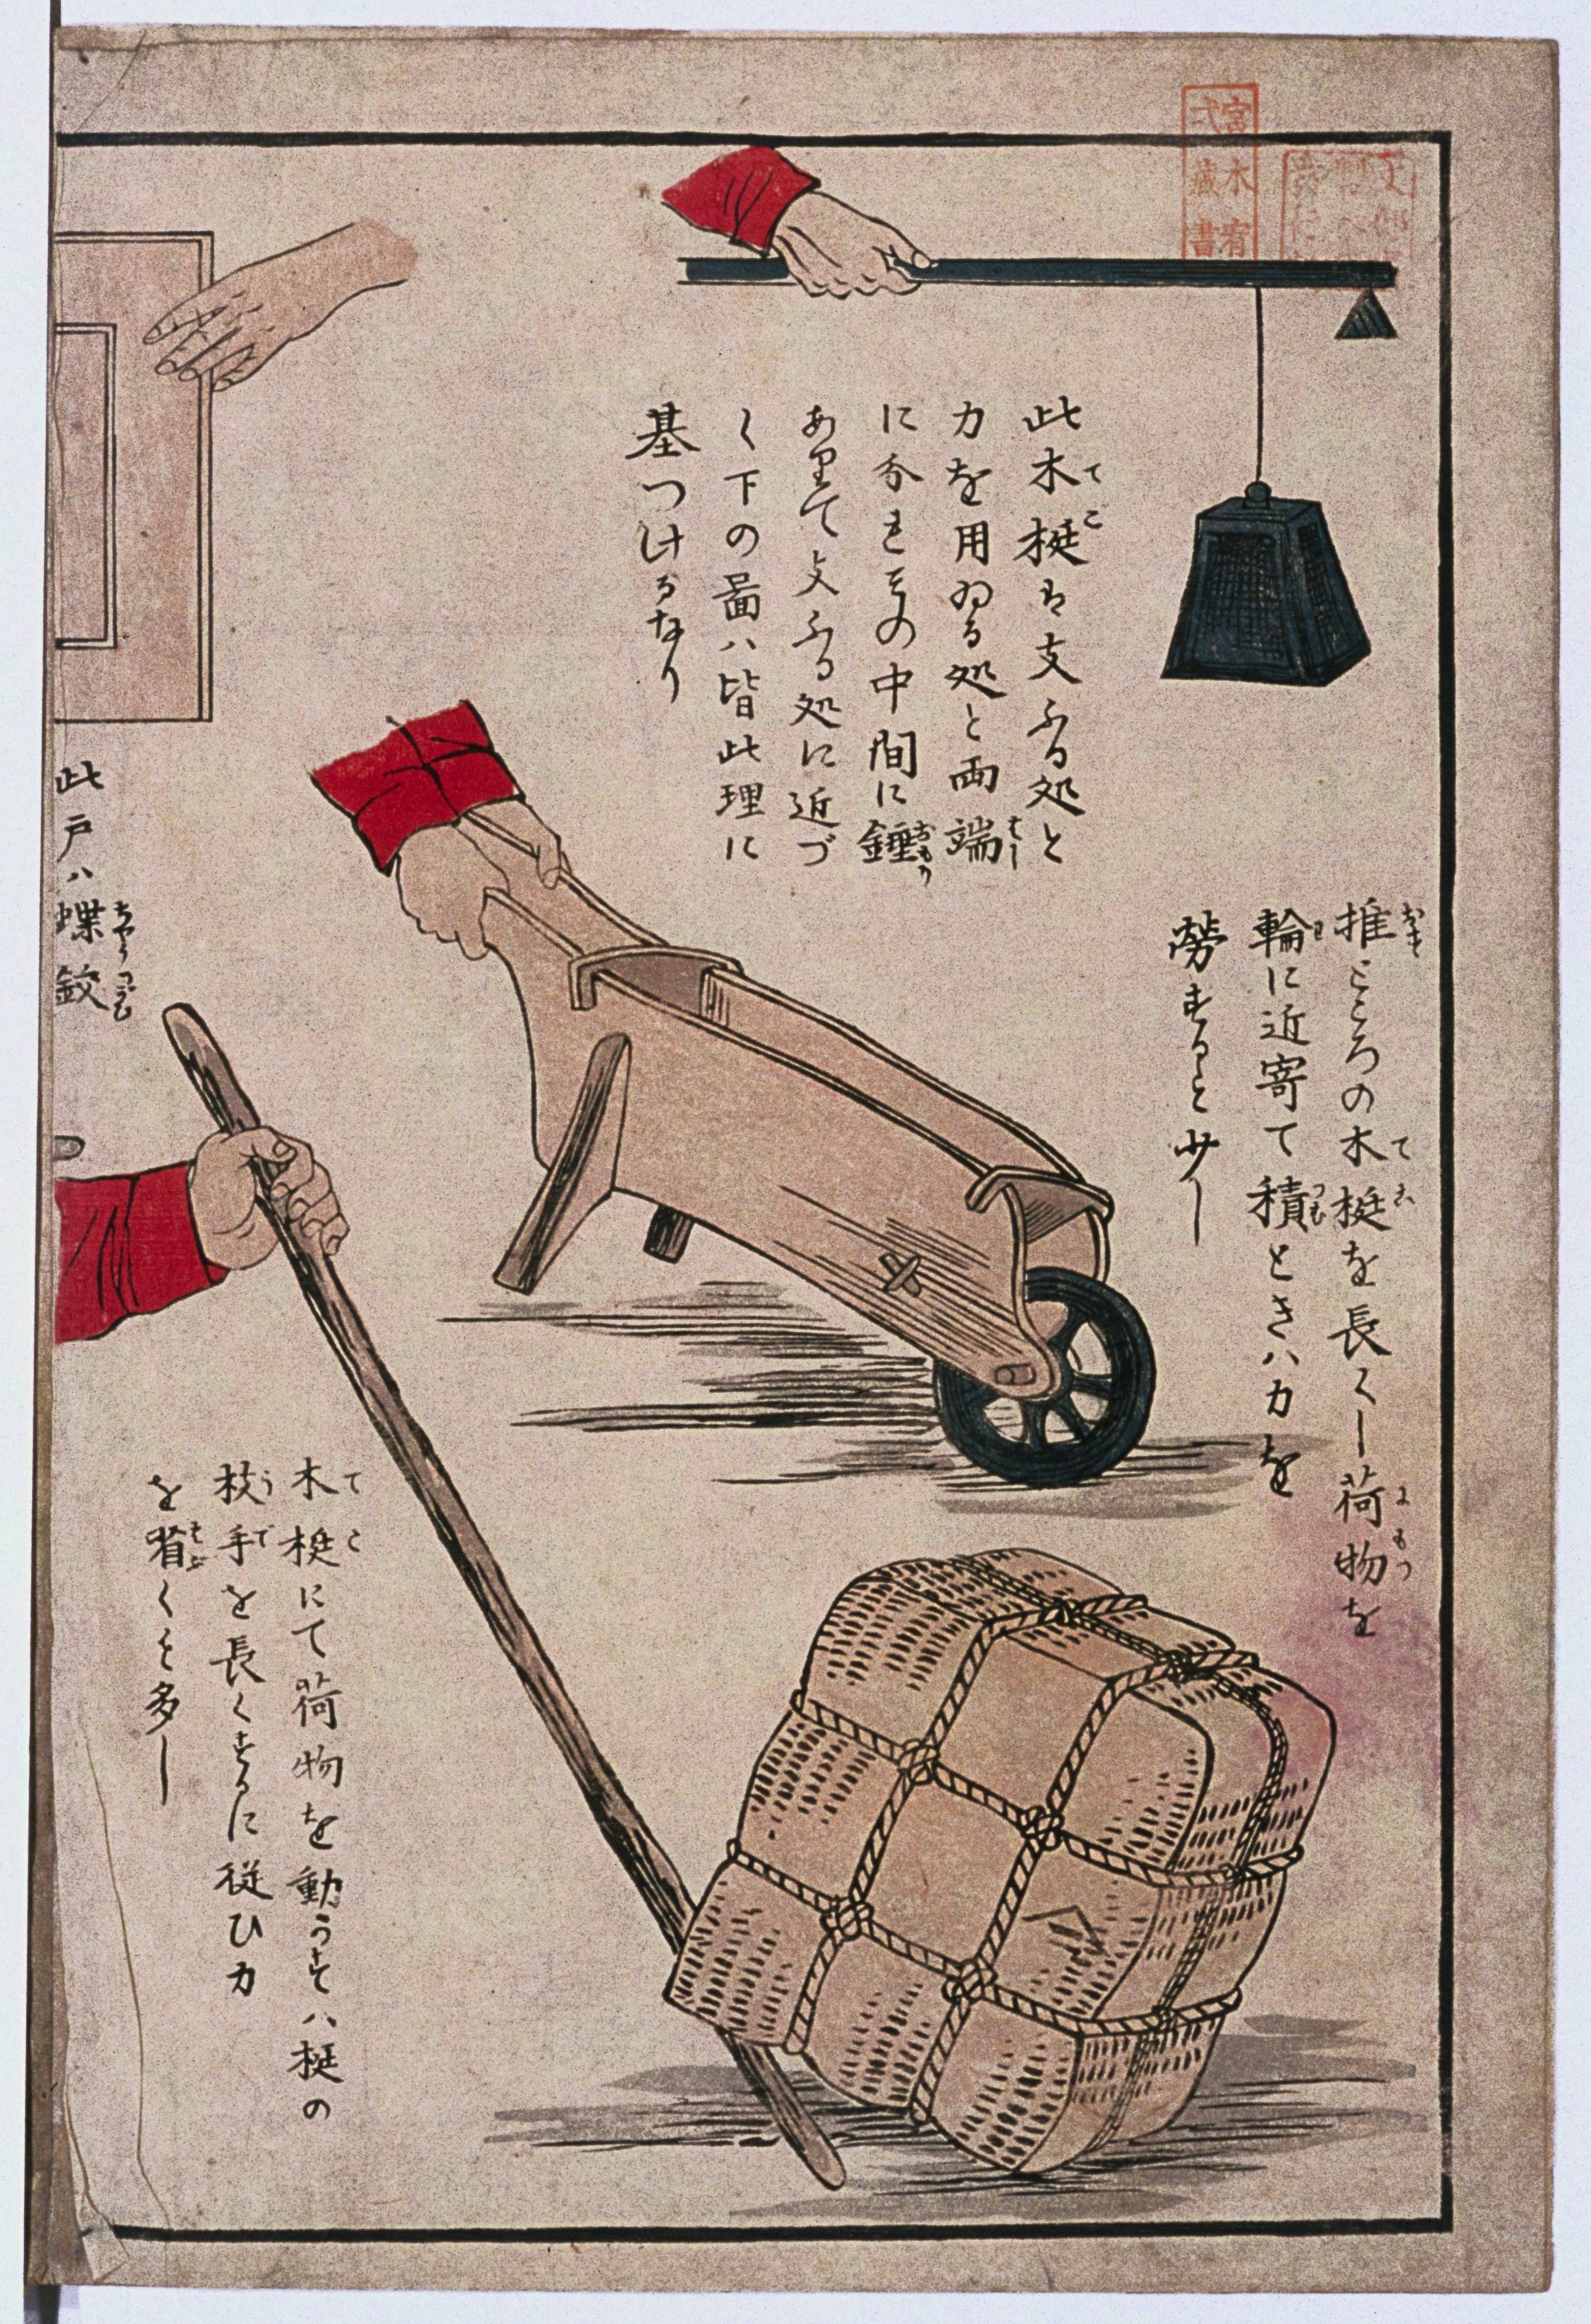 此木梃ハ支ふる処と
力を用ゐる処と両端
に分れその中間に錘
ありて支ふる処に近づ
く下の啚ハ皆此理に
基つけるなり
推ところの木梃を長くし荷物を
輪に近寄て積ときハ力を
労すること少し
木梃にて荷物を動かすハ梃の
枝手を長くするに従ひ力
を省くこと多し
此戸ハ蝶鉸
宮木宥
弌蔵書